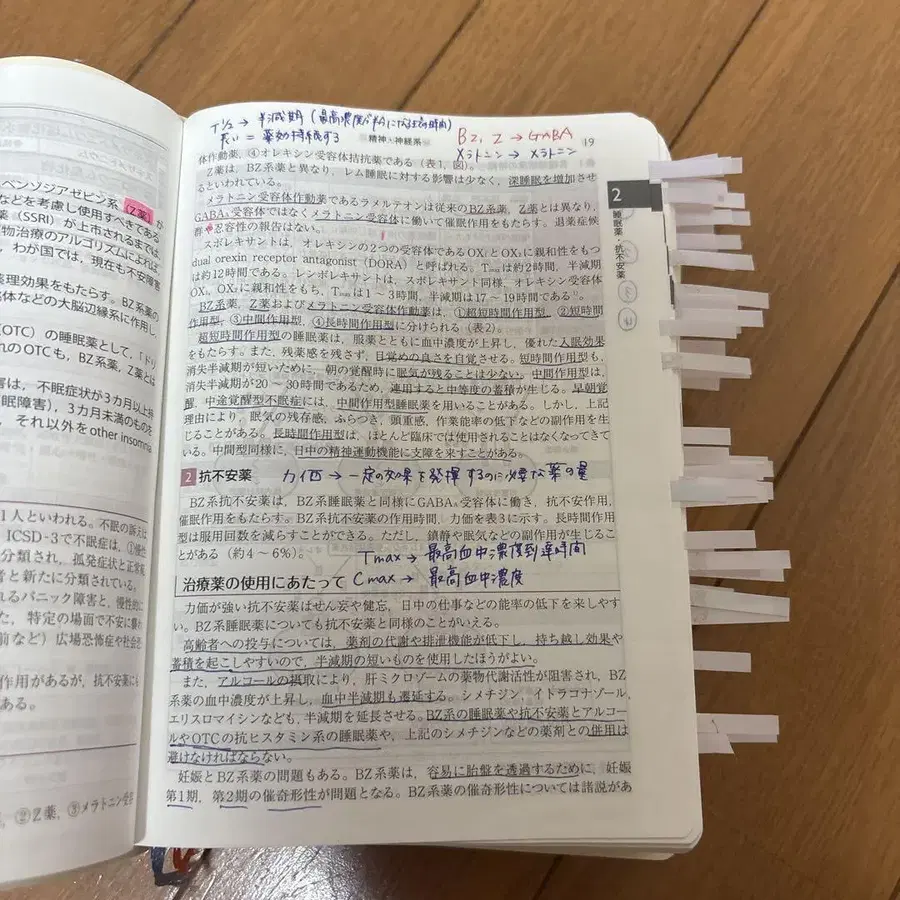 ベンゾジアゼピン系（Z薬）が
などを考慮し使用すべきである
薬（SSRI）が上市されるまでは，
物治療のアルゴリズムによれば
，わが国では，現在も不安障害
薬理効果をもたらす．BZ系薬の
体などの大脳辺縁系に作用し，
（OTC）の睡眠薬として，「ドリ
れのOTCも，BZ系薬，Z薬とは
害は，不眠症状が3カ月以上持
眠障害），3カ月未満のものを
，それ以外をother insomnia
1人といわれる．不眠の訴えは
ICSD-3で不眠症は，①慢性
分類され，孤発症状と正常範
者と新たに分類されている．
れるパニック障害と，慢性的に
た，特定の場面で不安に襲わ
前など）広場恐怖症や社会恐
作用があるが，抗不安薬にも
ある．
，②Z薬，③メラトニン受容
T1/2 → 半減期（最高濃度が半分になる時間）
長い = 薬効持続する
BZ, Z → GABA
メラトニン → メラトニン
精神・神経系
19
体作動薬，④オレキシン受容体拮抗薬である（表1，図）．
Z薬は，BZ系薬と異なり，レム睡眠に対する影響は少なく，深睡眠を増加させ
るといわれている．
メラトニン受容体作動薬であるラメルテオンは従来のBZ系薬，Z薬とは異なり，
GABAA受容体ではなくメラトニン受容体に働いて催眠作用をもたらす．退薬症候
群や忍容性の報告はない．
スボレキサントは，オレキシンの2つの受容体であるOX1とOX2に親和性をもつ
dual orexin receptor antagonist（DORA）と呼ばれる．Tmaxは約2時間，半減期
は約12時間である．レンボレキサントは，スボレキサント同様，オレキシン受容体
OX1，OX2に親和性をもち，Tmaxは1〜3時間，半減期は17〜19時間である1)．
BZ系薬，Z薬およびメラトニン受容体作動薬は，①超短時間作用型，②短時間
作用型，③中間作用型，④長時間作用型に分けられる（表2）．
超短時間作用型の睡眠薬は，服薬とともに血中濃度が上昇し，優れた入眠効果
をもたらす．また，残薬感を残さず，目覚めの良さを自覚させる．短時間作用型も，
消失半減期が短いために，朝の覚醒時に眠気が残ることは少ない．中間作用型は，
消失半減期が20〜30時間であるため，連用すると中等度の蓄積が生じる．早朝覚
醒，中途覚醒型不眠症には，中間作用型睡眠薬を用いることがある．しかし，上記
理由により，眠気の残存感，ふらつき，頭重感，作業能率の低下などの副作用を生
じることがある．長時間作用型は，ほとんど臨床では使用されることはなくなってきて
いる．中間型同様に，日中の精神運動機能に支障を来すことがある．
2 抗不安薬
力価 → 一定の効果を発揮するのに必要な薬の量
BZ系抗不安薬は，BZ系睡眠薬と同様にGABAA受容体に働き，抗不安作用，
催眠作用をもたらす．BZ系抗不安薬の作用時間，力価を表3に示す．長時間作用
型は服用回数を減らすことができる．ただし，鎮静や眠気などの副作用が生じるこ
とがある（約4〜6%）．
Tmax → 最高血中濃度到達時間
治療薬の使用にあたって
Cmax → 最高血中濃度
力価が強い抗不安薬はせん妄や健忘，日中の仕事などの能率の低下を来しやす
い．BZ系睡眠薬についても抗不安薬と同様のことがいえる．
高齢者への投与については，薬剤の代謝や排泄機能が低下し，持ち越し効果や
蓄積を起こしやすいので，半減期の短いものを使用したほうがよい．
また，アルコールの摂取により，肝ミクロゾームの薬物代謝活性が阻害され，BZ
系薬の血中濃度が上昇し，血中半減期も遷延する．シメチジン，イトラコナゾール，
エリスロマイシンなども，半減期を延長させる．BZ系の睡眠薬や抗不安薬とアルコー
ルやOTCの抗ヒスタミン系の睡眠薬や，上記のシメチジンなどの薬剤との併用は
避けなければならない．
妊娠とBZ系薬の問題もある．BZ系薬は，容易に胎盤を透過するために，妊娠
第1期，第2期の催奇形性が問題となる．BZ系薬の催奇形性については諸説があ
2
睡眠薬・抗不安薬